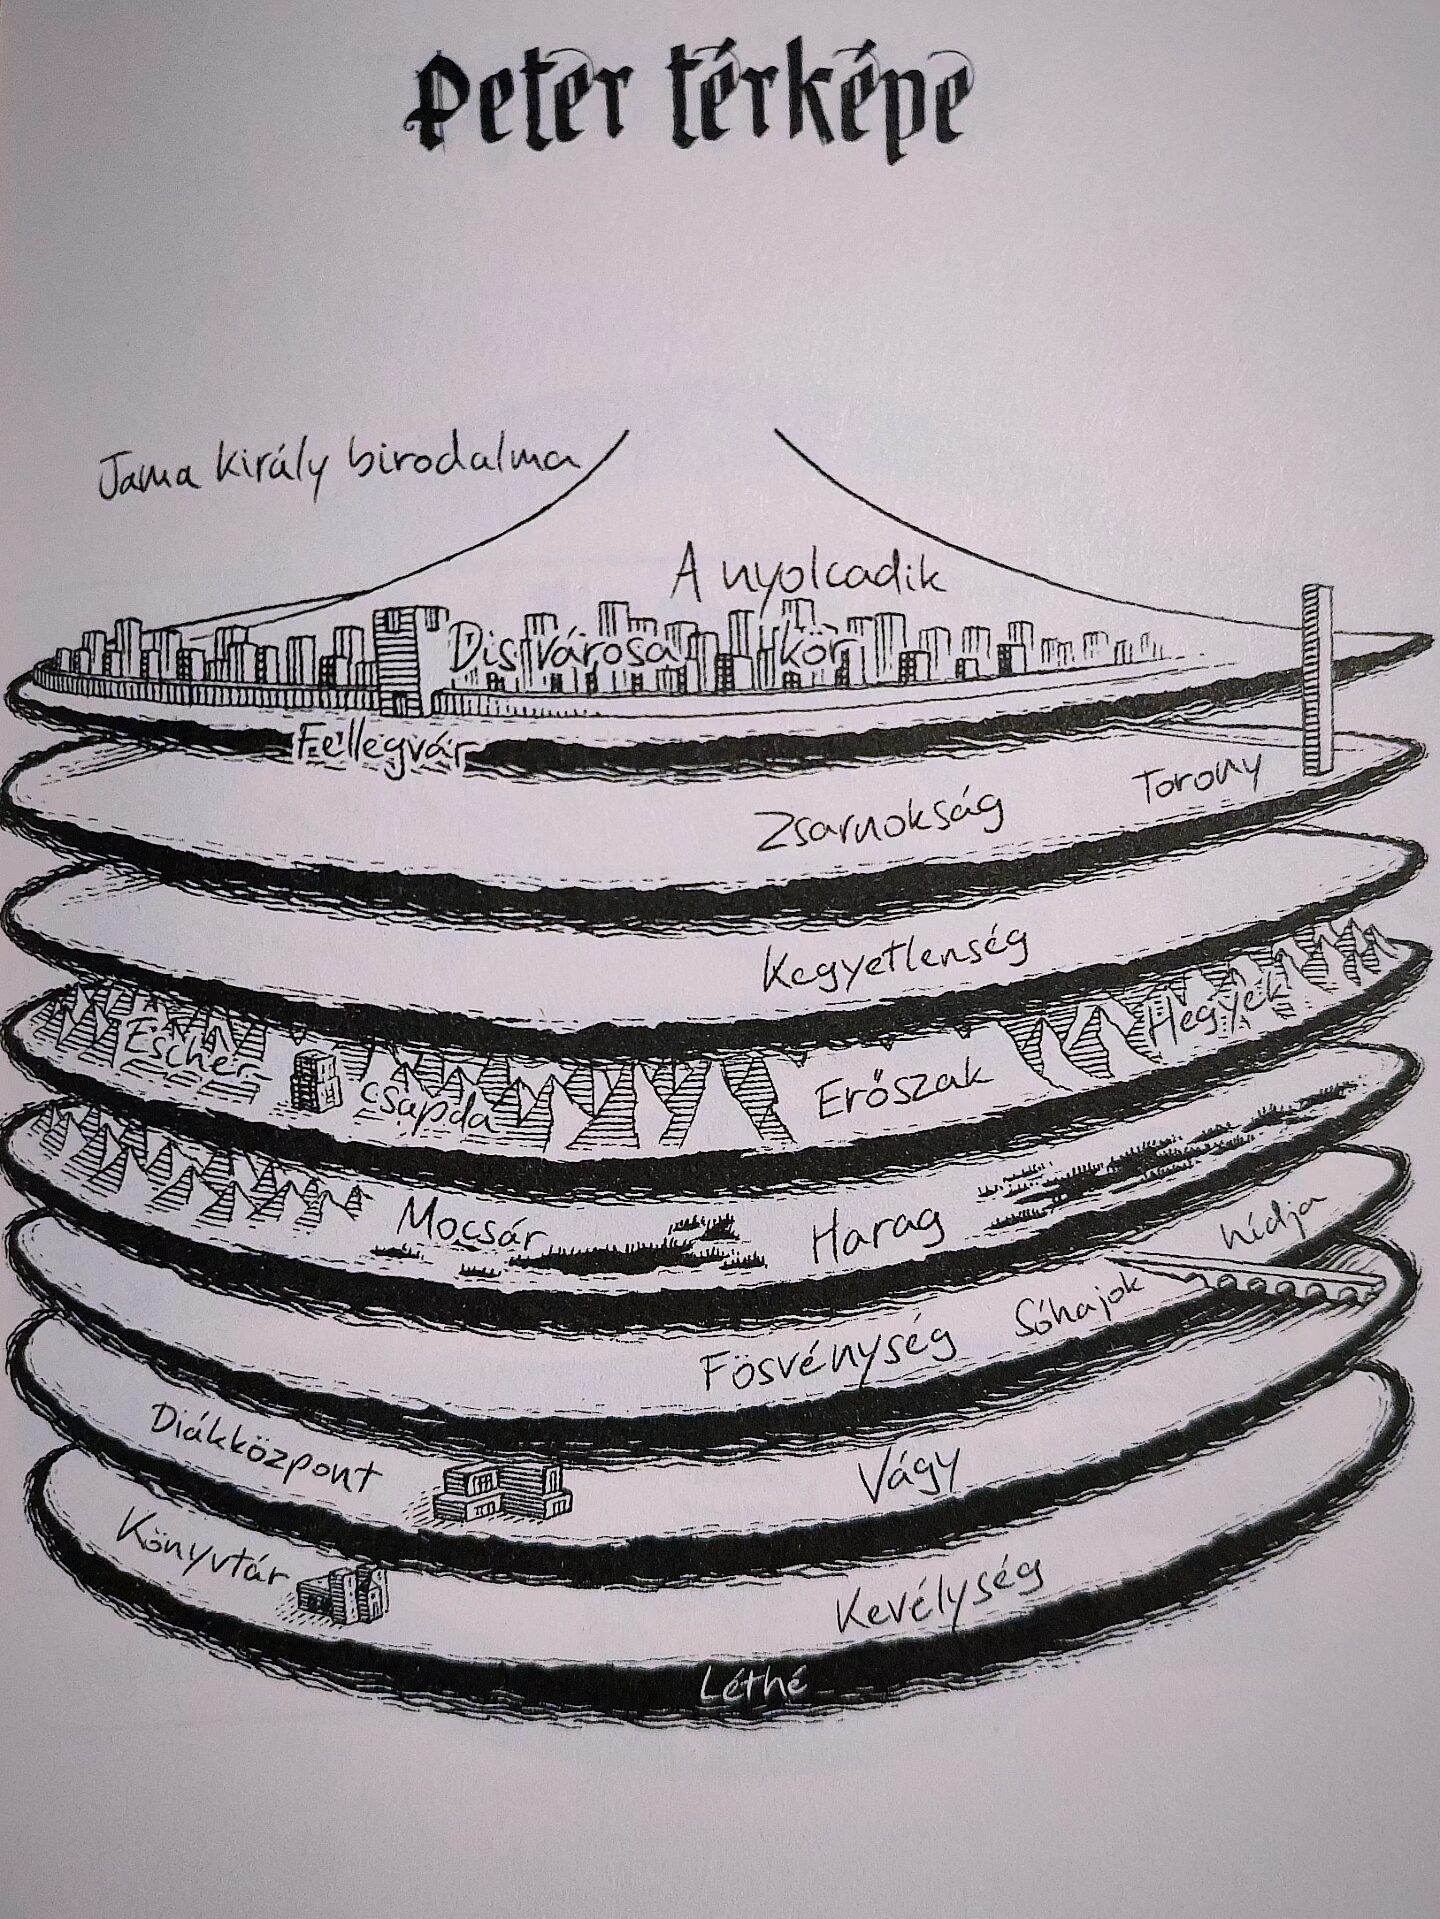 Peter térképe
Jama király birodalma
A nyolcadik
Dis városa kör
Fellegvár
Torony
Zsarnokság
Kegyetlenség
Hegyek
Escher-
csapda
Erőszak
Mocsár
Harag
hídja
Sóhajok
Fösvénység
Diákközpont
Vágy
Könyvtár
Kevélység
Léthé